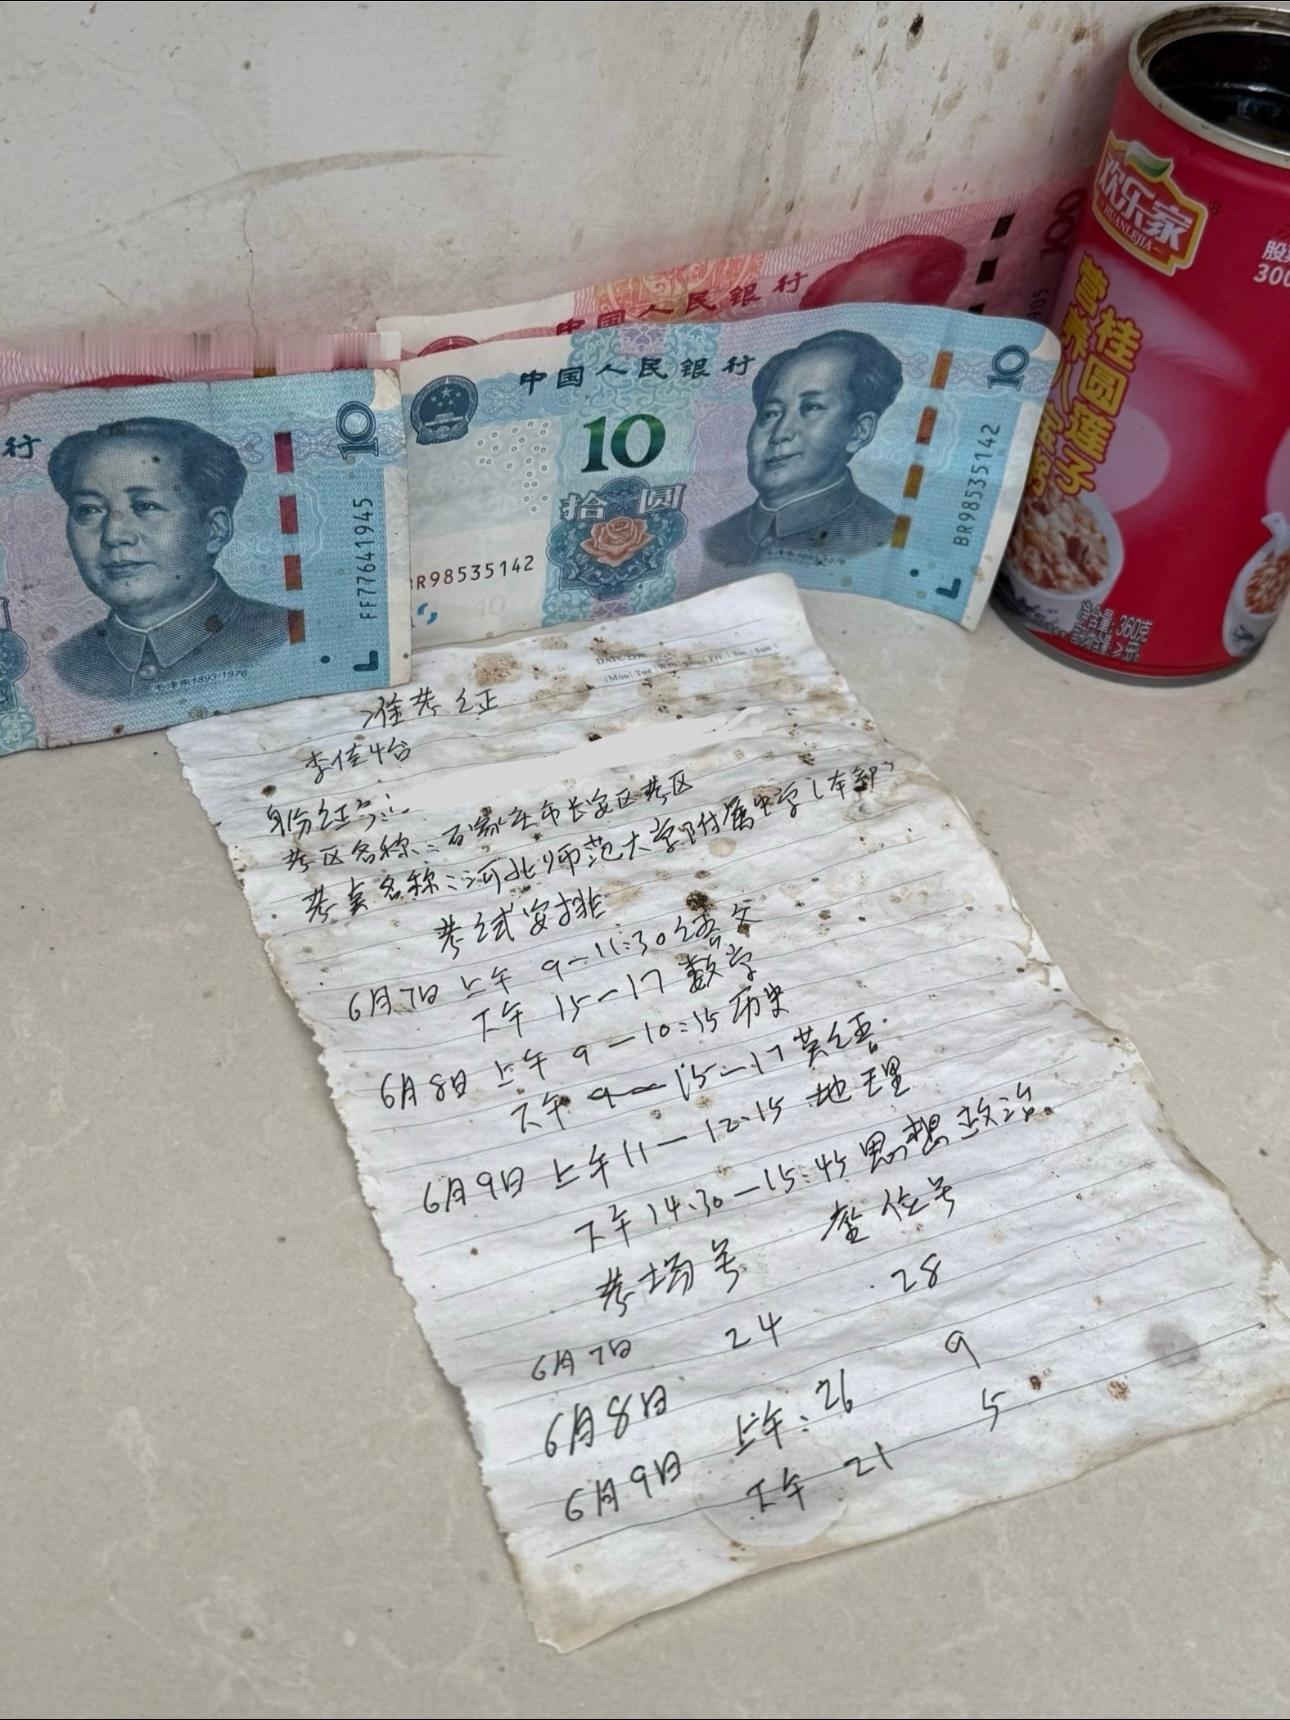 中国人民银行
100
905
中国人民银行
10
拾圆
10
BR98535142
BR98535142
行
10
FF7641945
毛泽东1893-1976
欢乐家
HUANLEJIA
桂圆莲子
营养八宝粥
300
360克
Mon Tue Fri Sat Sun
准考证
李佳怡
身份证号:
考区名称:石家庄市长安区考区
考点名称:河北师范大学附属中学(本部)
考试安排
6月7日 上午 9-11:30 语文
下午 15-17 数学
6月8日 上午 9-10:15 历史
下午 9-15-17 英语.
6月9日 上午 11-12:15 地理
下午 14:30-15:45 思想政治.
考场号 座位号
6月7日 24 28
6月8日 上午:26 9
6月9日 下午 21 5